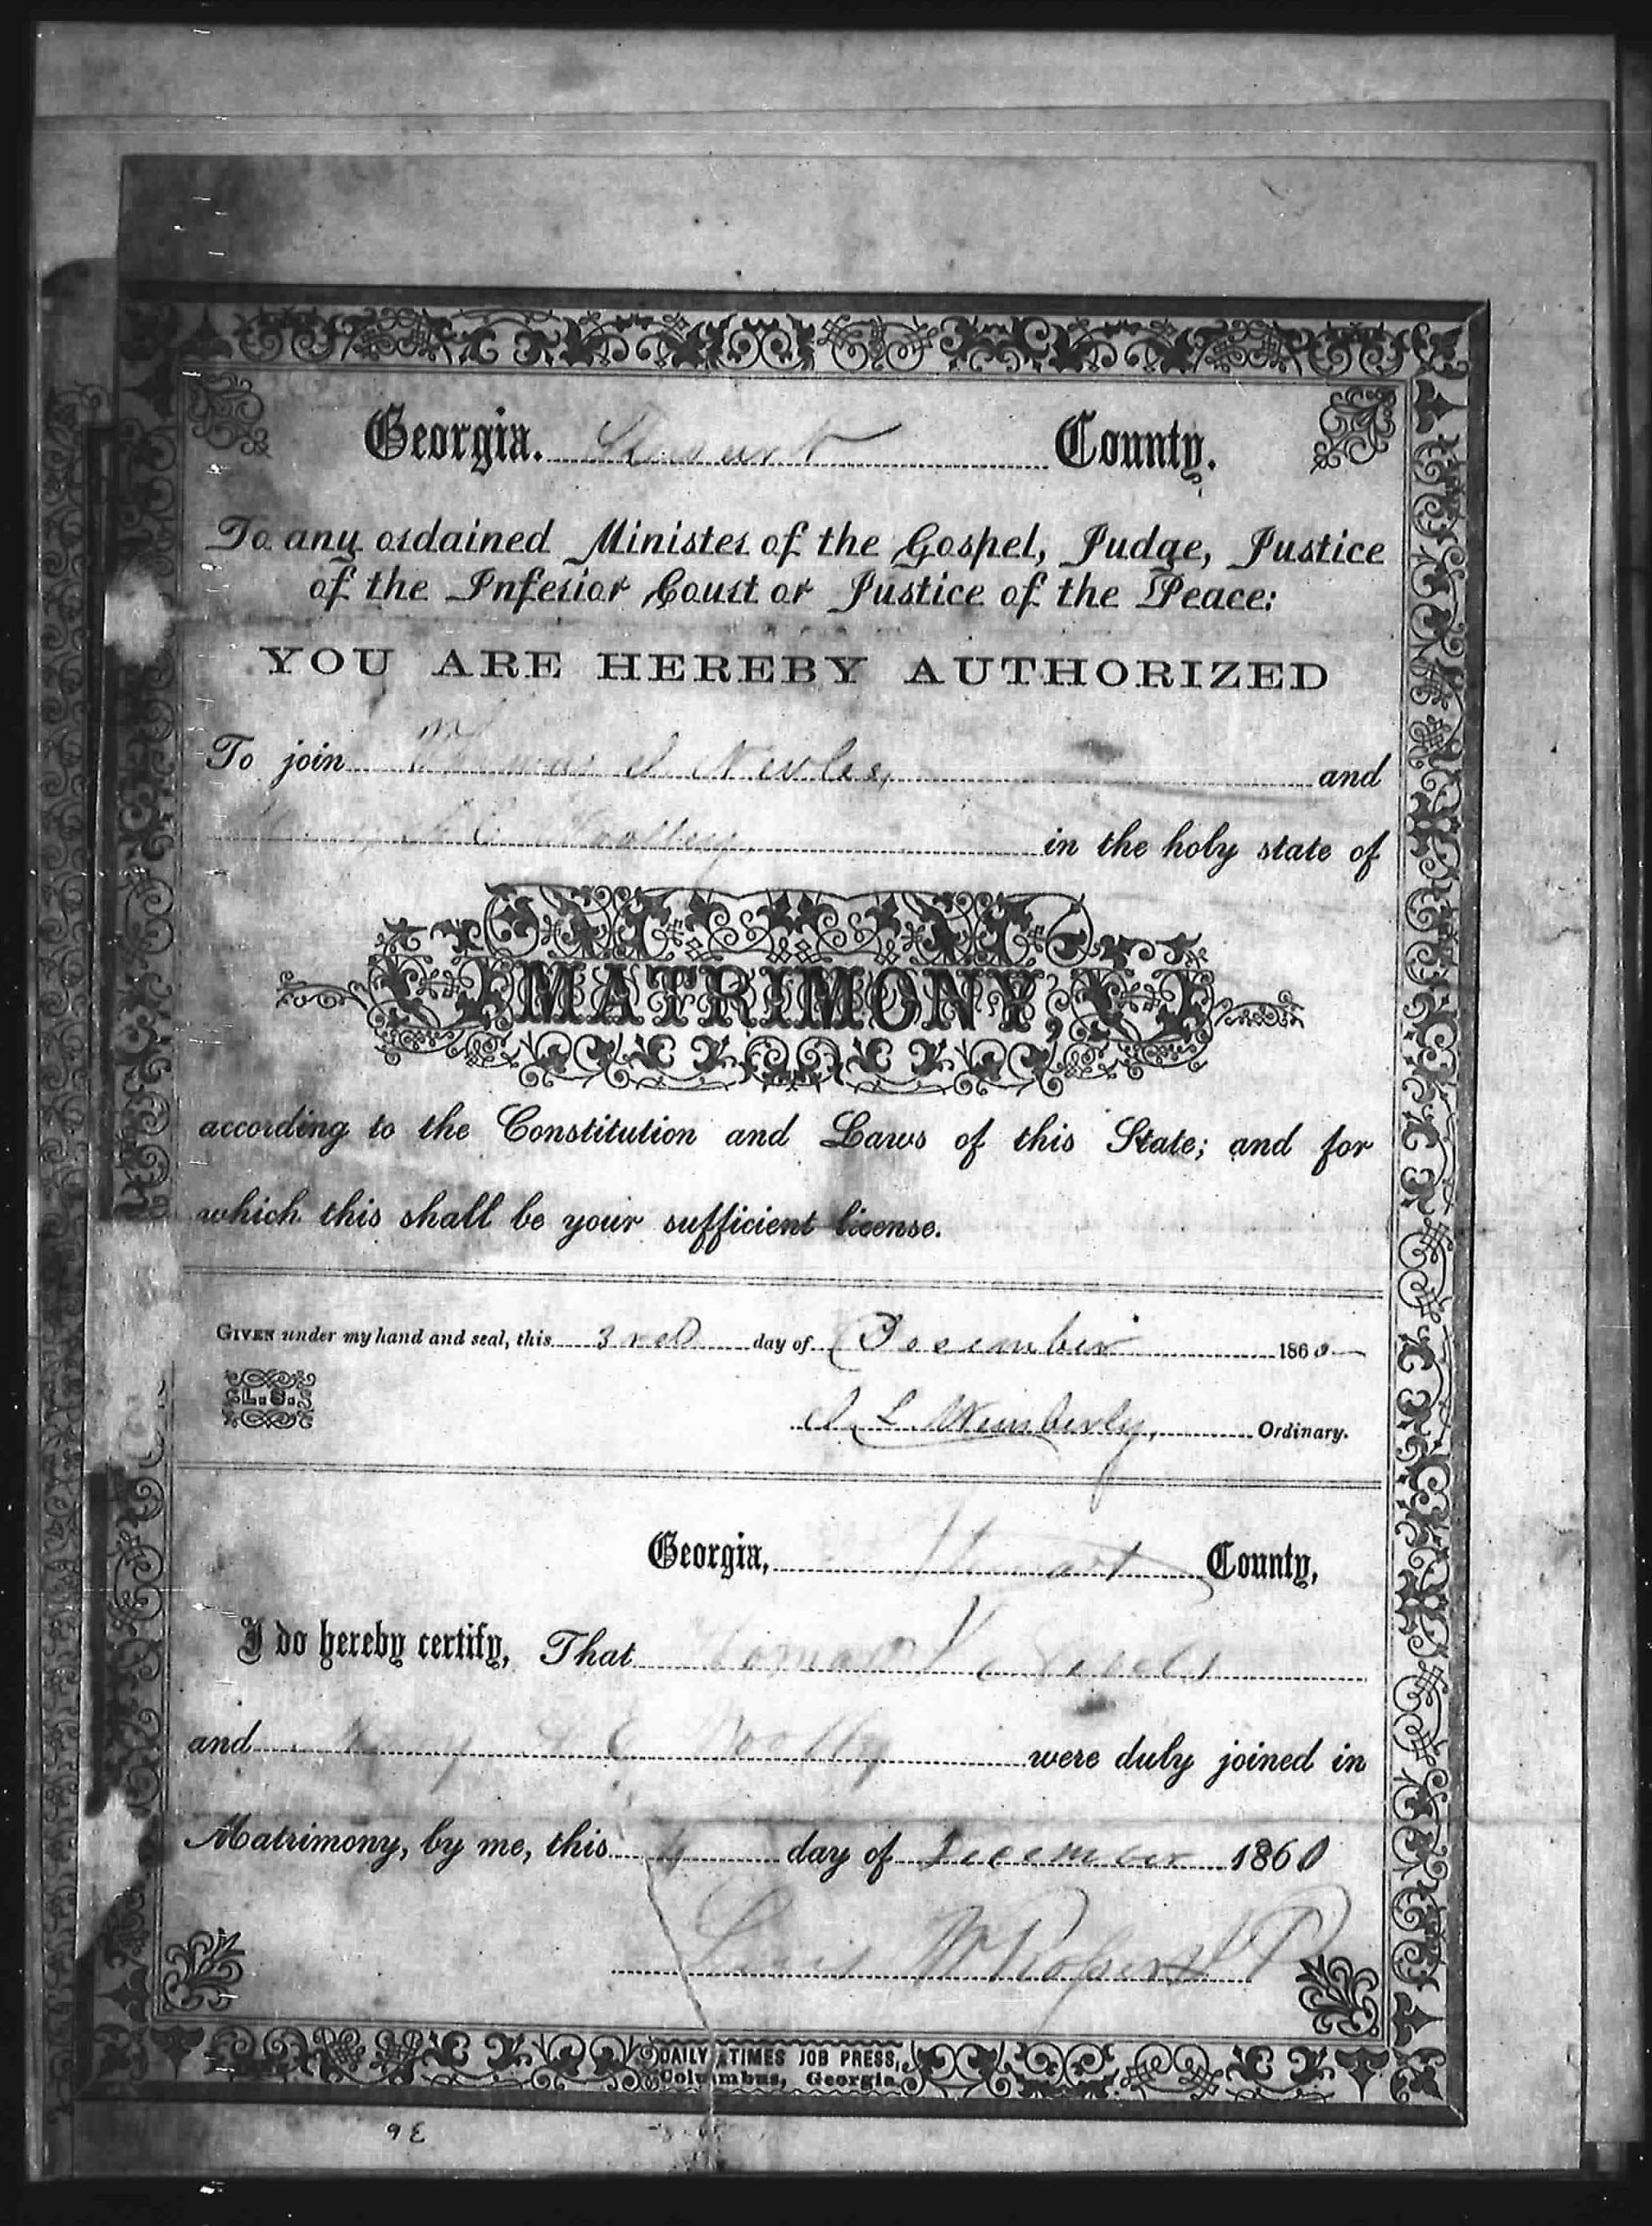 Georgia. Stewart County.
To any ordained Minister of the Gospel, Judge, Justice
of the Inferior Court or Justice of the Peace:
YOU ARE HEREBY AUTHORIZED
To join Thomas J. Newles, and
Mary A. C. Woolley in the holy state of
MATRIMONY,
according to the Constitution and Laws of this State; and for
which this shall be your sufficient license.
GIVEN under my hand and seal, this 3red day of December 1860
L. S.
J. L. Wimberly, Ordinary.
Georgia, Stewart County,
I do hereby certify, That Thomas J
and Mary A C Woolly were duly joined in
Matrimony, by me, this 4 day of December 1860
Roper J P
DAILY TIMES JOB PRESS,
Columbus, Georgia.